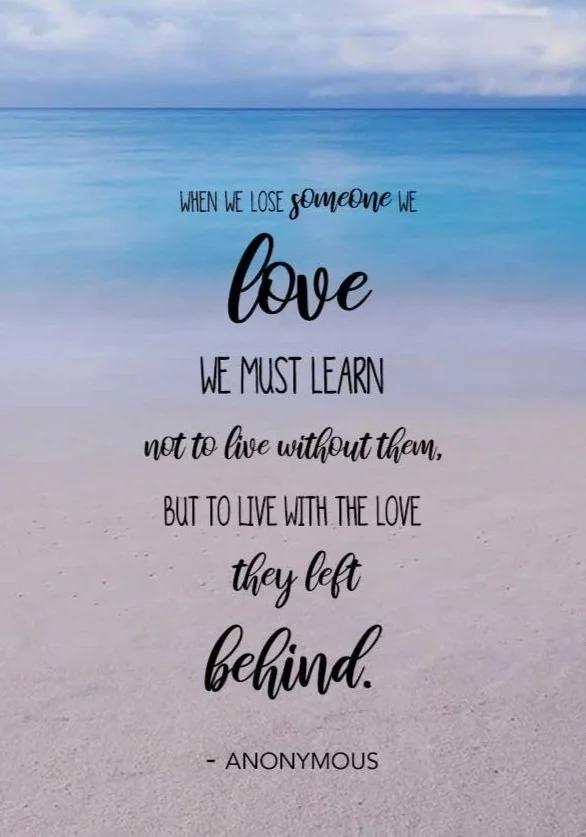 WHEN WE LOSE someone WE
love
WE MUST LEARN
not to live without them,
BUT TO LIVE WITH THE LOVE
they left
behind.
- ANONYMOUS